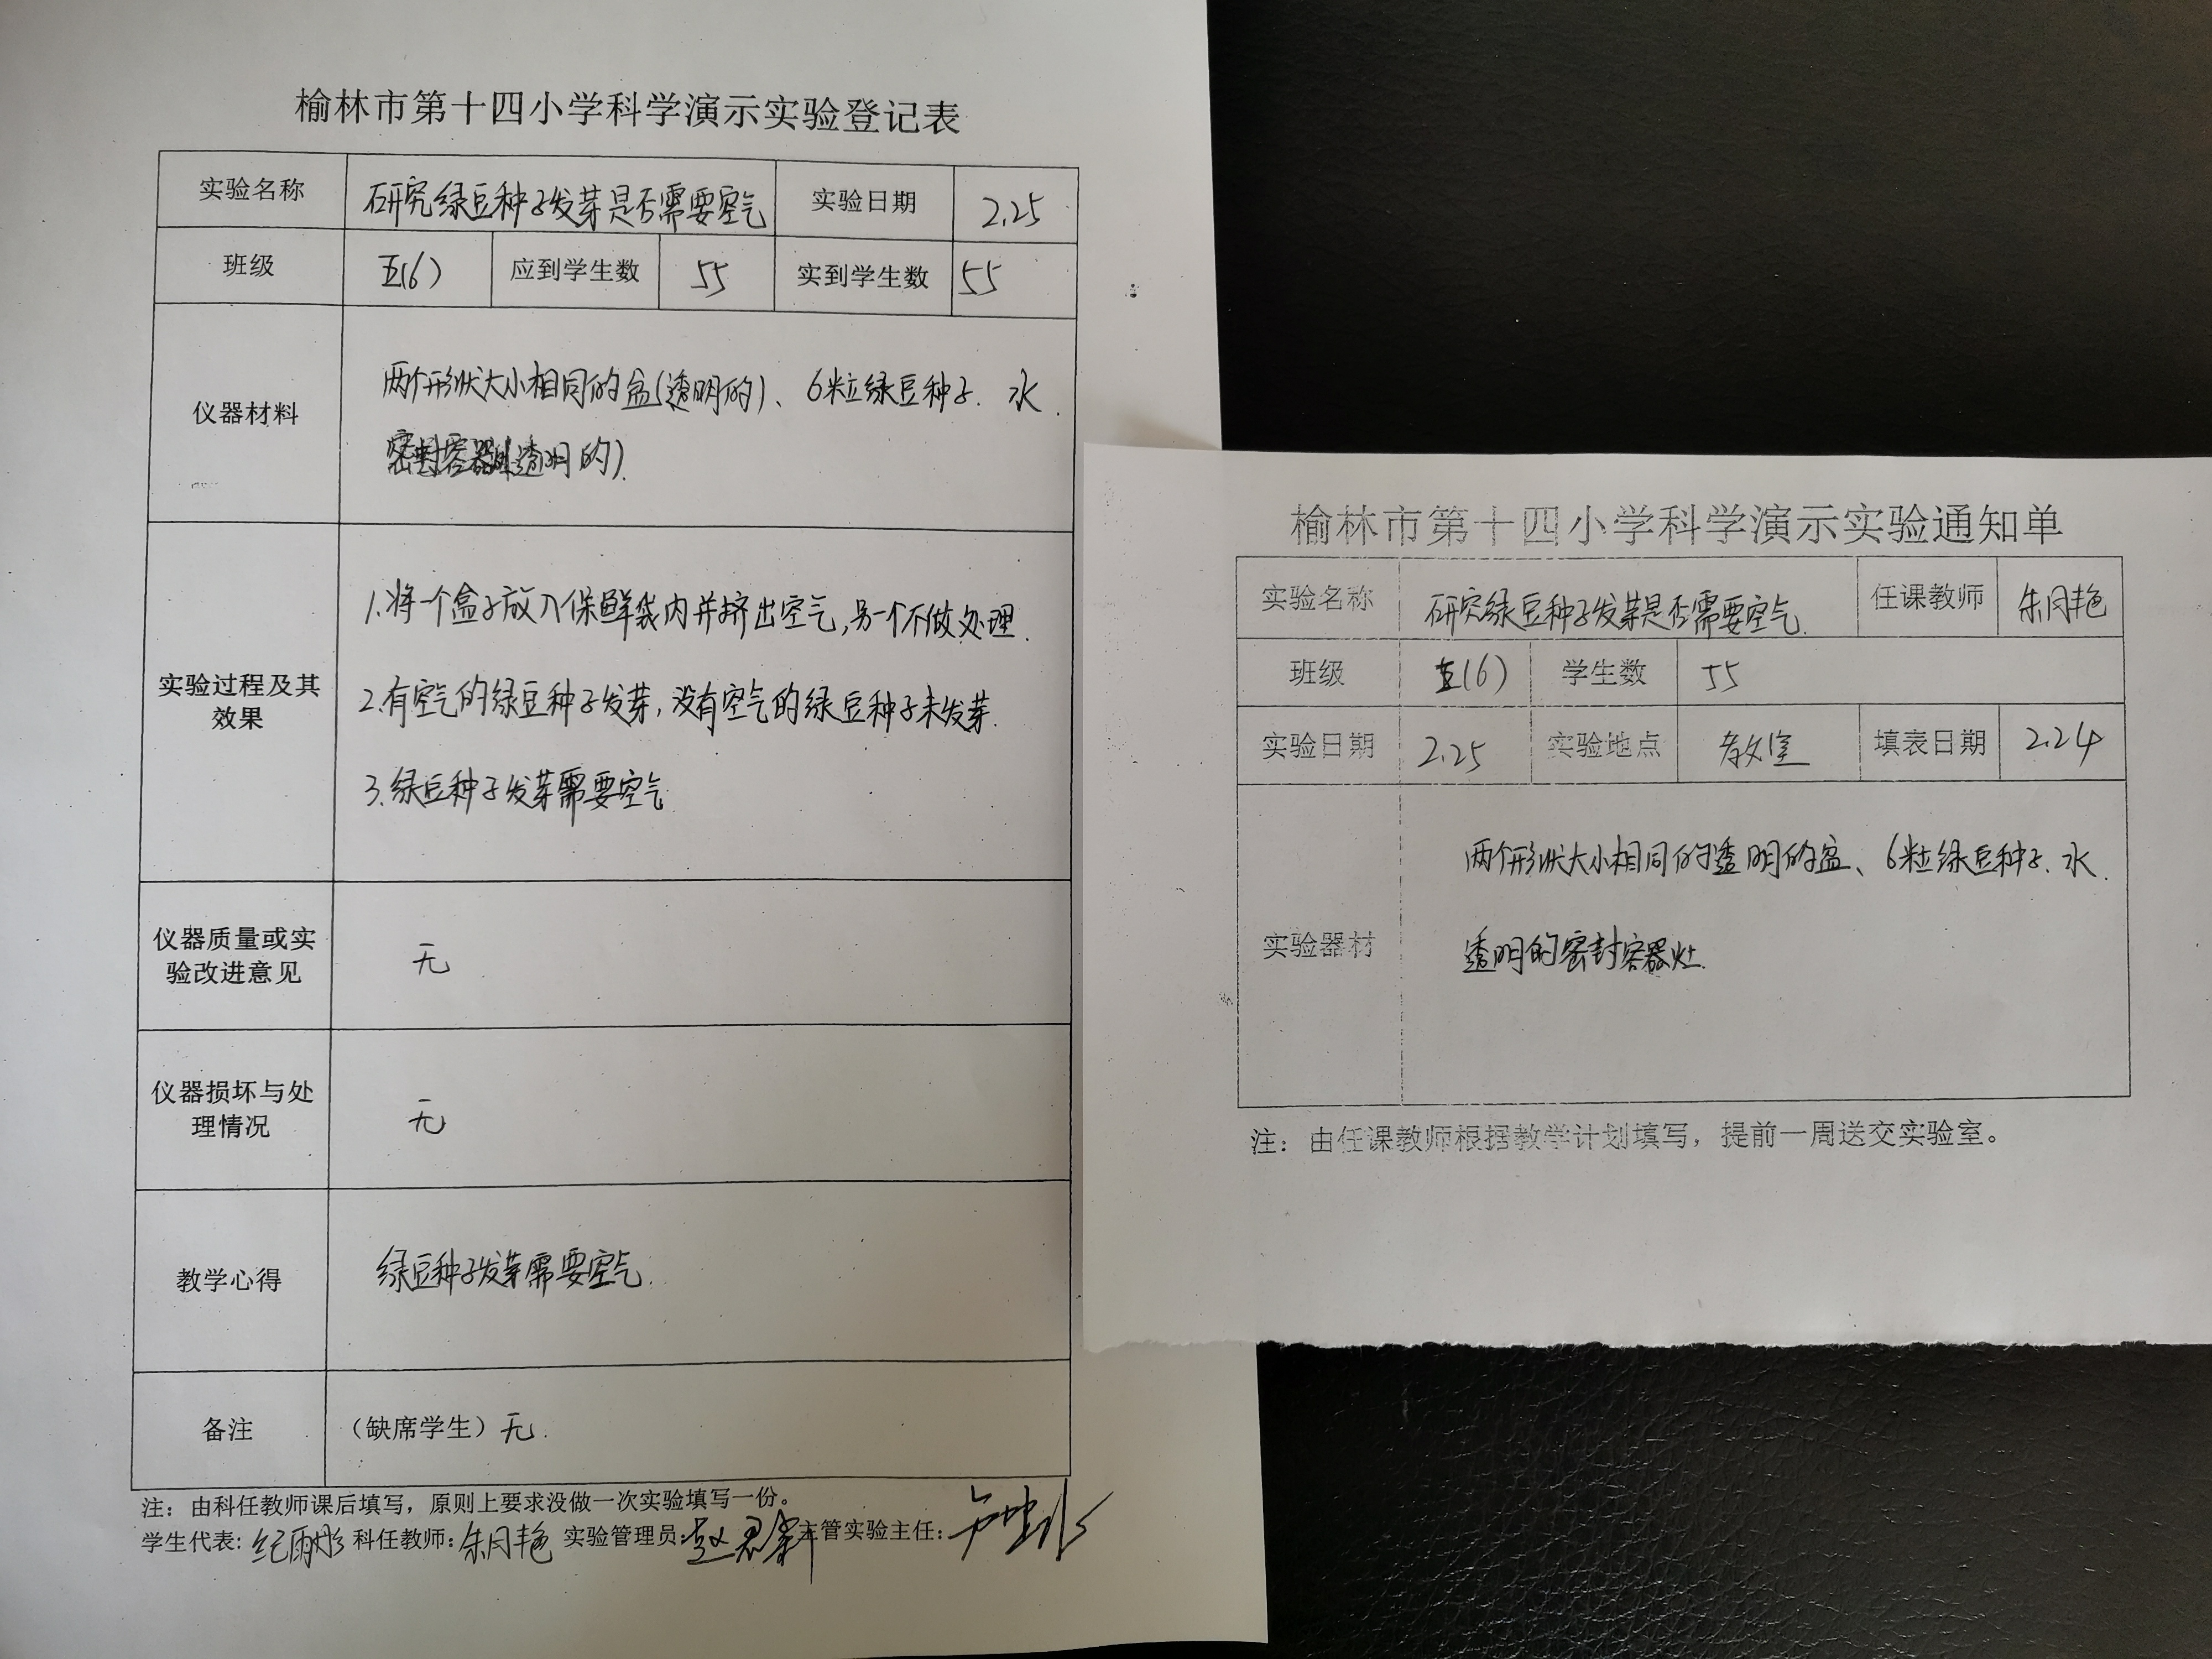 榆林市第十四小学科学演示实验登记表
实验名称 研究绿豆种子发芽是否需要空气 实验日期 2.25
班级 五(6) 应到学生数 55 实到学生数 55
仪器材料
两个形状大小相同的盆(透明的)、6粒绿豆种子. 水.
密封容器(透明的).
实验过程及其
效果
1.将一个盒子放入保鲜袋内并挤出空气,另一个不做处理.
2.有空气的绿豆种子发芽,没有空气的绿豆种子未发芽.
3.绿豆种子发芽需要空气
仪器质量或实
验改进意见
无
仪器损坏与处
理情况
无
教学心得 绿豆种子发芽需要空气.
备注 (缺席学生)无.
注：由科任教师课后填写，原则上要求没做一次实验填写一份。
学生代表: 纪雨彤 科任教师: 朱月艳 实验管理员: 主管实验主任:
榆林市第十四小学科学演示实验通知单
实验名称 研究绿豆种子发芽是否需要空气. 任课教师 朱月艳
班级 五(6) 学生数 55
实验日期 2.25 实验地点 教室 填表日期 2.24
实验器材
两个形状大小相同的透明的盆、6粒绿豆种子.水.
透明的密封容器
注：由任课教师根据教学计划填写，提前一周送交实验室。